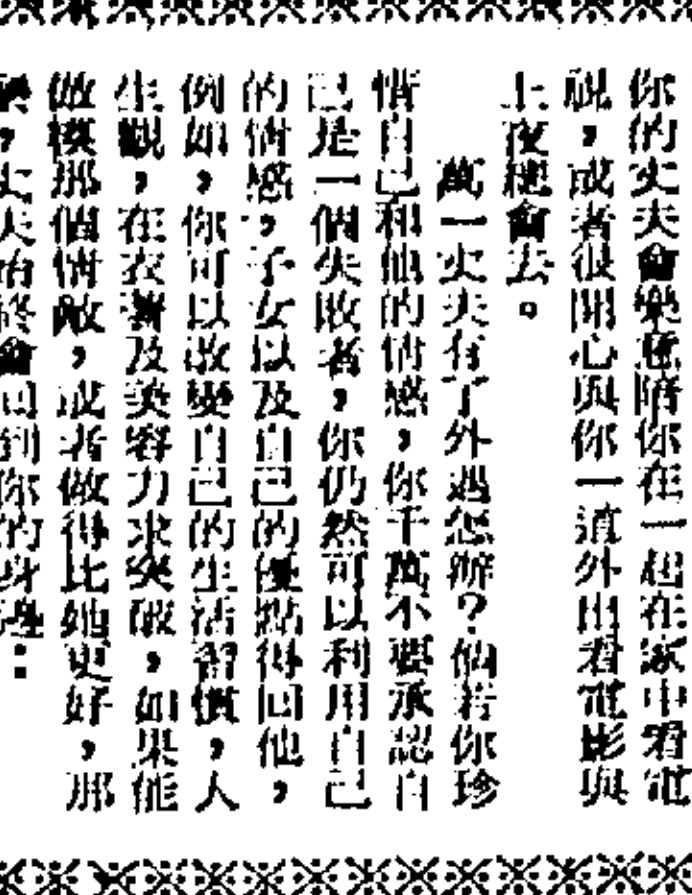 你的丈夫會樂意陪你在一起在家中看電
視，或者很開心與你一道外出看電影與
上夜總會去。
萬一丈夫有了外遇怎辦？倘若你珍
惜自己和他的情感，你千萬不要承認自
己是一個失敗者，你仍然可以利用自己
的情感，子女以及自己的優點得回他，
例如，你可以改變自己的生活習慣，人
生觀，在衣著及美容力求突破，如果能
做模那個情敵，或者做得比她更好，那
，丈夫始終會回到你的身邊：